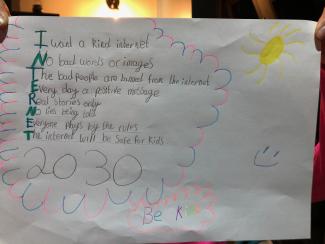 I want a kind internet
No bad words or images
The bad people are banned from the internet
Every day a positive message
Real stories only
No lies being told
Everyone plays by the rules
The internet will be safe for kids
2030
Be Kind